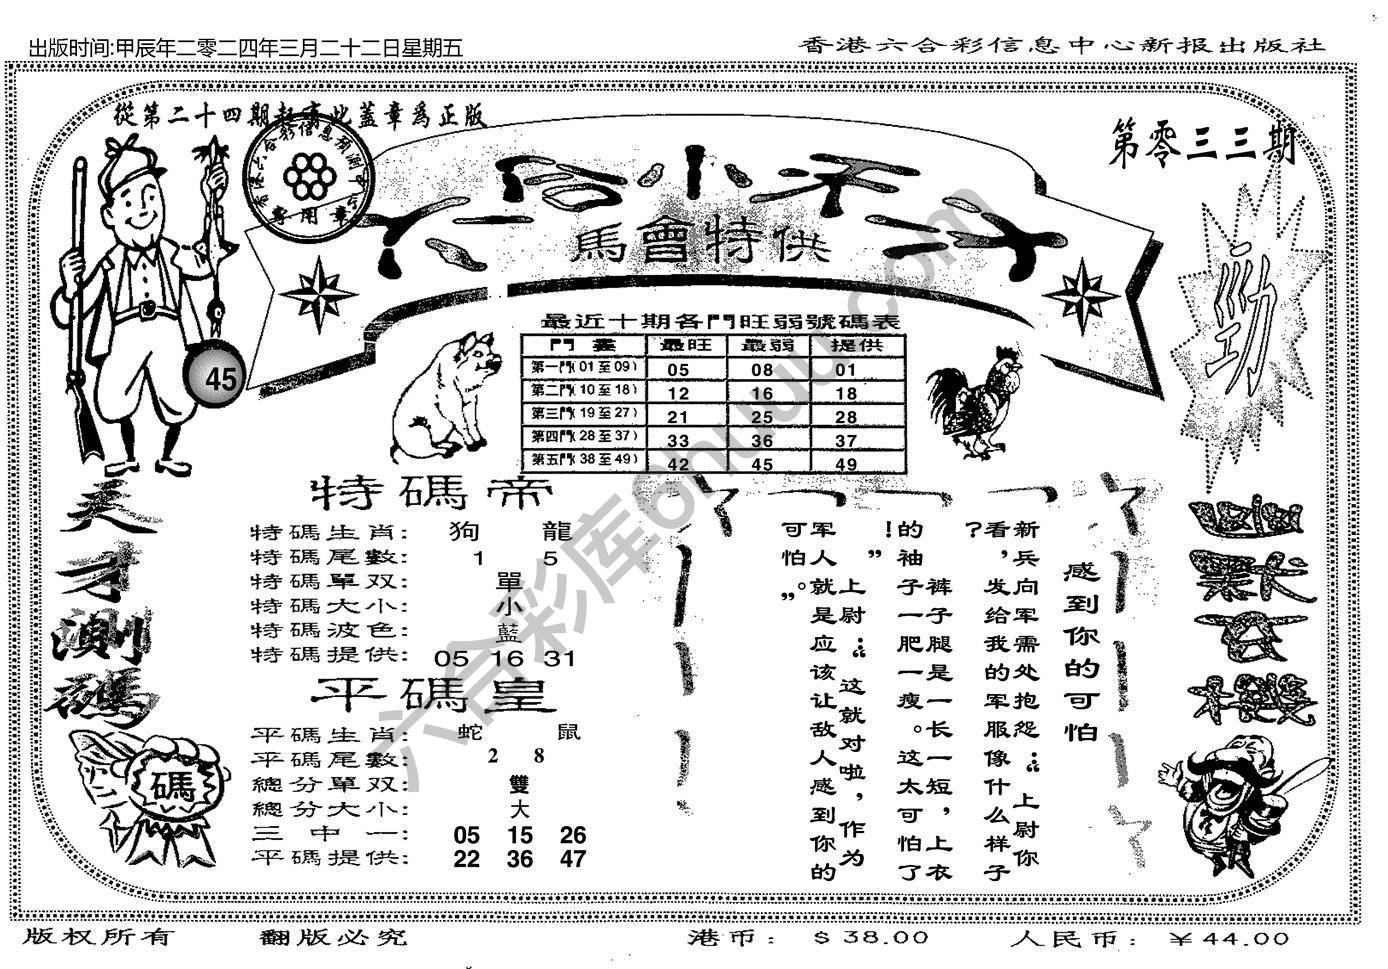 出版时间:甲辰年二零二四年三月二十二日星期五
香港六合彩信息中心新报出版社
從第二十四期起有此蓋章爲正版
第零三三期
專用章
六合小天子
馬會特供
劲
45
最近十期各門旺弱號碼表
門 最旺 最弱 提供
第一門(01至09) 05 08 01
第二門(10至18) 12 16 18
第三門(19至27) 21 25 28
第四門(28至37) 33 36 37
第五門(38至49) 42 45 49
天才測碼
特碼帝
特碼生肖: 狗 龍
特碼尾數: 1 5
特碼單双: 單
特碼大小: 小
特碼波色: 藍
特碼提供: 05 16 31
平碼皇
平碼生肖: 蛇 鼠
平碼尾數: 2 8
總分單双: 雙
總分大小: 大
三中一: 05 15 26
平碼提供: 22 36 47
碼
感到你的可怕
新兵向军需处抱怨:“上尉你
看,发给我的军服像什么样子
?裤子腿一是一长一短,上衣
的袖子一肥一瘦。这太可怕了
!”上尉:“这就对啦,作为
军人就是应该让敌人感到你的
可怕。”
幽默玄機
六合彩库6huuu.com
版权所有 翻版必究 港币: $38.00 人民币: ￥44.00